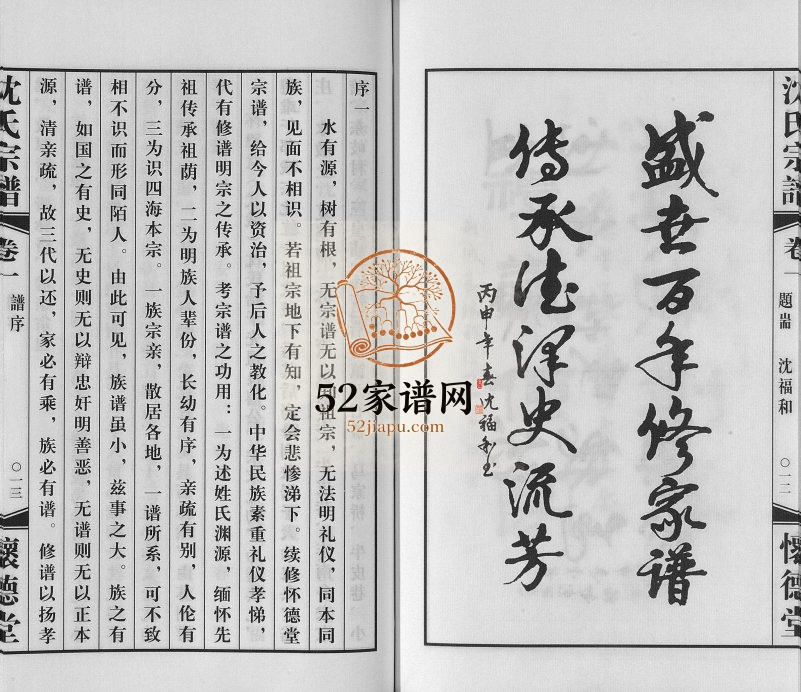 沈氏宗譜
卷一
題耑
沈福和
〇一二
懷德堂
盛世百年修家谱
傳承德泽史流芳
丙申年春沈福和书
序一
水有源，树有根，无宗谱无以知祖宗，无法明礼仪，同本同
族，见面不相识。若祖宗地下有知，定会悲惨涕下。续修怀德堂
宗谱，给今人以资治，予后人之教化。中华民族素重礼仪孝悌，
代有修谱明宗之传承。考宗谱之功用：一为述姓氏渊源，缅怀先
祖传承祖荫，二为明族人辈份，长幼有序，亲疏有别，人伦有
分，三为识四海本宗。一族宗亲，散居各地，一谱所系，可不致
相不识而形同陌人。由此可见，族谱虽小，兹事之大。族之有
谱，如国之有史，无史则无以辩忠奸明善恶，无谱则无以正本
源，清亲疏，故三代以还，家必有乘，族必有谱。修谱以扬孝
沈氏宗譜
卷一
譜序
〇一三
懷德堂
52家谱网
52jiapu.com